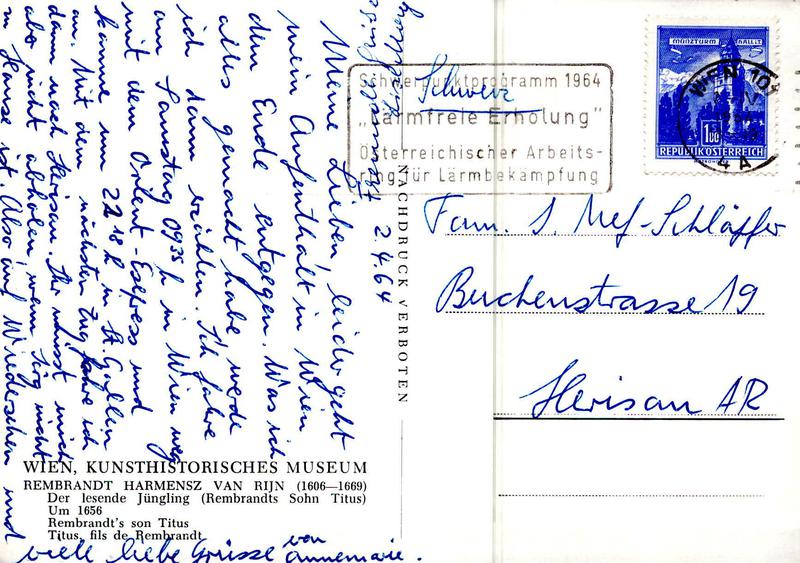 Wien, 2.4.64
Meine Lieben, leider geht
mein Aufenthalt in Wien
dem Ende entgegen. Was ich
alles gemacht habe, werde
ich dann erzählen. Ich fahre
am Samstag 09 35 h in Wien weg
mit dem Orient-Express und
komme um 22 18 h in St. Gallen
an. Mit dem nächsten Zug fahre ich
dann nach Herisau. Ihr müsst mich
also nicht abholen, wenn Jürg nicht
zu Hause ist. Also auf Wiedersehen und
viele liebe Grüsse von
Annemarie.
WIEN, KUNSTHISTORISCHES MUSEUM
REMBRANDT HARMENSZ VAN RIJN (1606—1669)
Der lesende Jüngling (Rembrandts Sohn Titus)
Um 1656
Rembrandt's son Titus
Titus, fils de Rembrandt
NACHDRUCK VERBOTEN
Schwerpunktprogramm 1964
„Lärmfreie Erholung"
Österreichischer Arbeits-
ring für Lärmbekämpfung
MÜNZTURM HALL i.T.
1.50
REPUBLIK ÖSTERREICH
WIEN 101
4A
Schweiz
Fam. J. Nef-Schläpfer
Buchenstrasse 19
Herisau AR